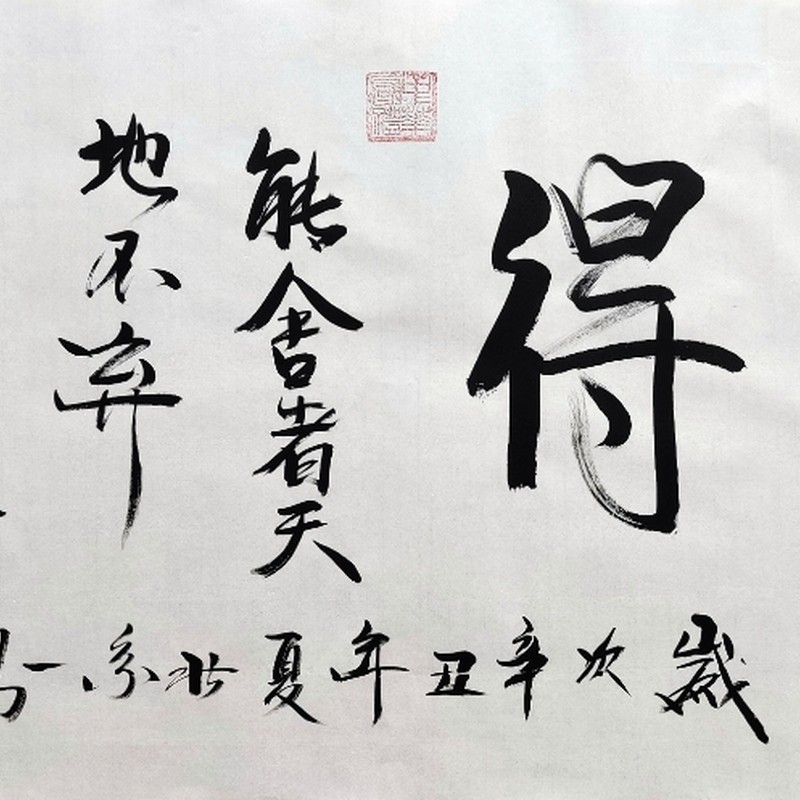 得
能舍者天
地不弃
歲次辛丑年夏北京一